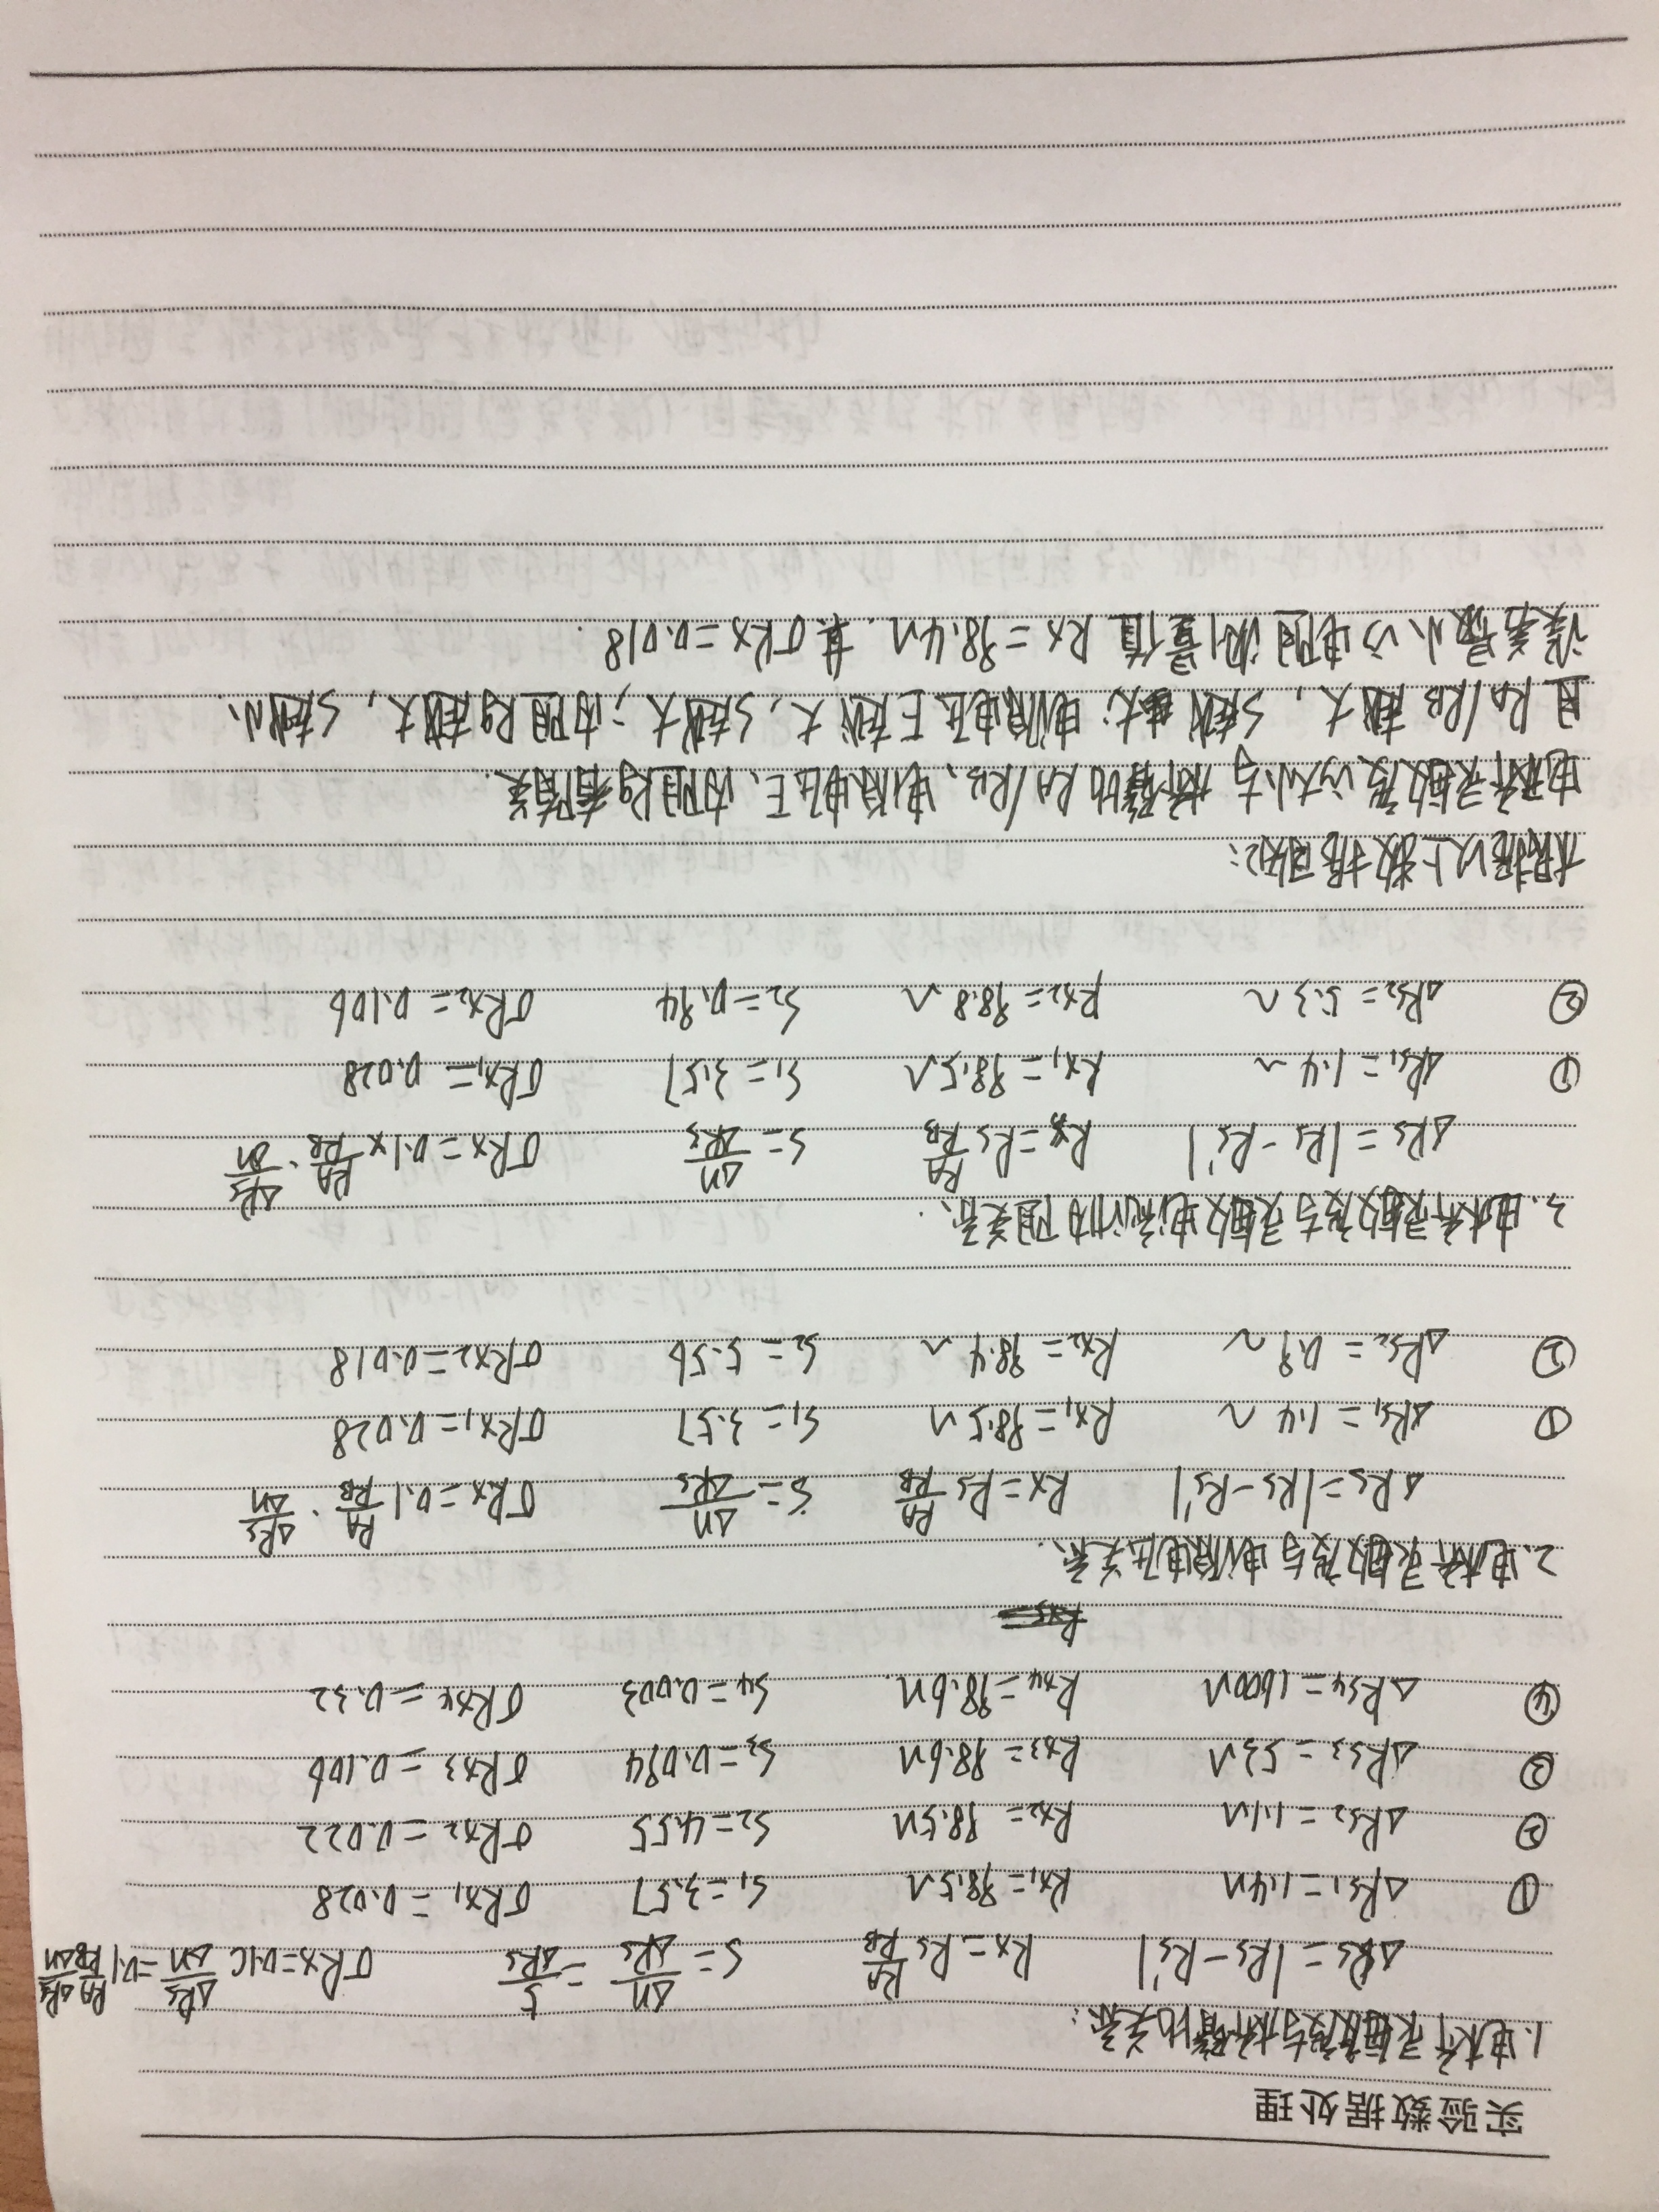 实验数据处理
1.电桥灵敏度与桥臂比关系:
ΔRs = |Rs - Rs'| Rx = Rs RA/RB S = Δn/ΔRs = 5/ΔRs σRx = 0.1C ΔRs/Δn = 0.1 RA/RB ΔRs/Δn
① ΔRs1 = 1.4Ω Rx1 = 98.5Ω S1 = 3.57 σRx1 = 0.028
② ΔRs2 = 1.1Ω Rx2 = 98.5Ω S2 = 4.55 σRx2 = 0.022
③ ΔRs3 = 53Ω Rx3 = 98.6Ω S3 = 0.094 σRx3 = 0.106
④ ΔRs4 = 1600Ω Rx4 = 98.6Ω S4 = 0.003 σRx4 = 0.32
2.电桥灵敏度与电源电压关系.
ΔRs = |Rs - Rs'| Rx = Rs RA/RB S = Δn/ΔRs σRx = 0.1 RA/RB · ΔRs/Δn
① ΔRs1 = 1.4Ω Rx1 = 98.5Ω S1 = 3.57 σRx1 = 0.028
② ΔRs2 = 0.9Ω Rx2 = 98.4Ω S2 = 5.56 σRx2 = 0.018
3.电桥灵敏度与灵敏电流计内阻关系.
ΔRs = |Rs - Rs'| Rx = Rs RA/RB S = Δn/ΔRs σRx = 0.1× RA/RB · ΔRs/Δn
① ΔRs1 = 1.4Ω Rx1 = 98.5Ω S1 = 3.57 σRx1 = 0.028
② ΔRs2 = 5.3Ω Rx2 = 98.8Ω S2 = 0.94 σRx2 = 0.106
根据以上数据可知:
电桥灵敏度的大小与桥臂比RA/RB、电源电压E、内阻Rg有关
且RA/RB越大,S越大;电源电压E越大,S越大;内阻Rg越大,S越小.
误差最小的电阻测量值Rx=98.4Ω. 其σRx=0.018.